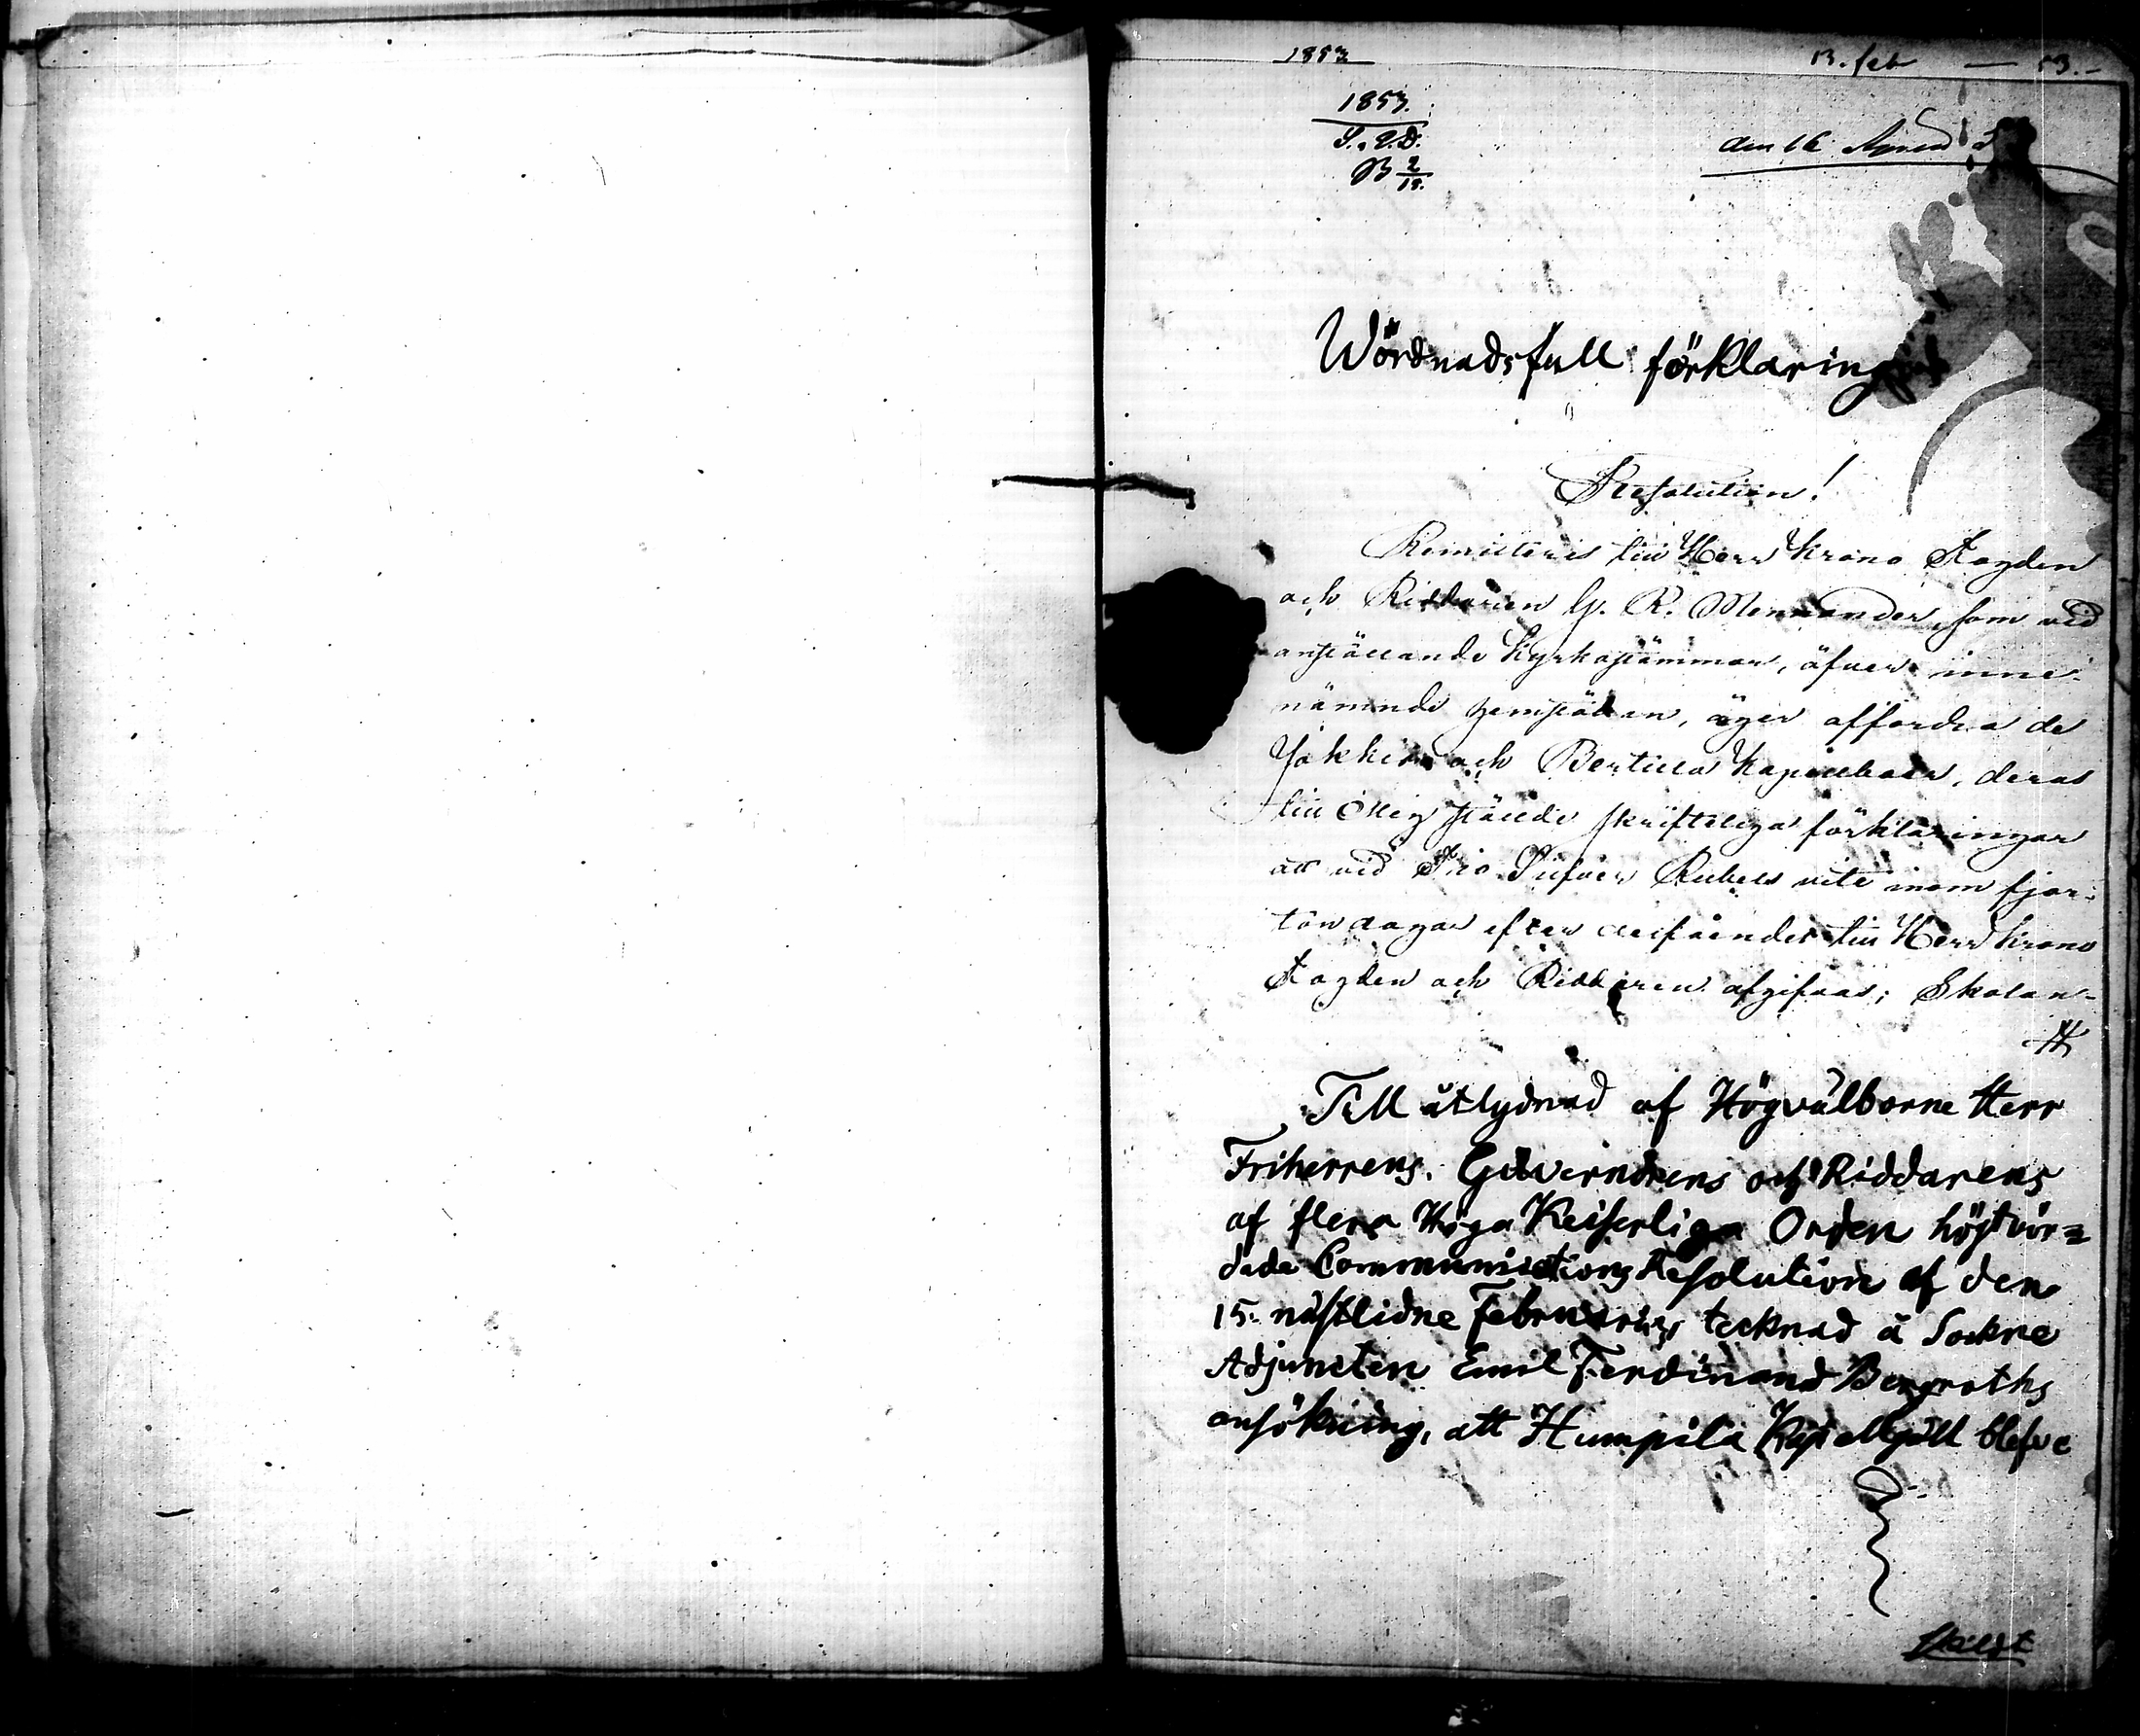 1853
13. feb — 53.-
1853.
S.V.D.
B 2/19.
den 16 April
Wördnadsfull förklaring
Resolution!
Remitteras till Herr Krono Fogden
och Riddaren G. R. Mennander, som vid
anställande Kyrkostämmor, öfver inne-
nämnde hemställan, äger affordra de
Jokkis och Bertilla Kapellboar, deras
till Mig ställde skrifteliga förklaringar
att vid Tio Silfver Rubels vite inom fjor-
ton dagar efter delfåendet till Herr Krono
Fogden och Riddaren afgifvas; Skolan-
Till åtlydnad af Högvälborne Herr
Friherrens, Guvernörens och Riddarens
af flera Höga Keiserliga Orden högtvör=
dade Communications Resolution af den
15. nästlidne Februarii, tecknad å Sockne
Adjuncten Emil Ferdinand Bergroths
ansökning, att Humpila Kapellgäll blefve